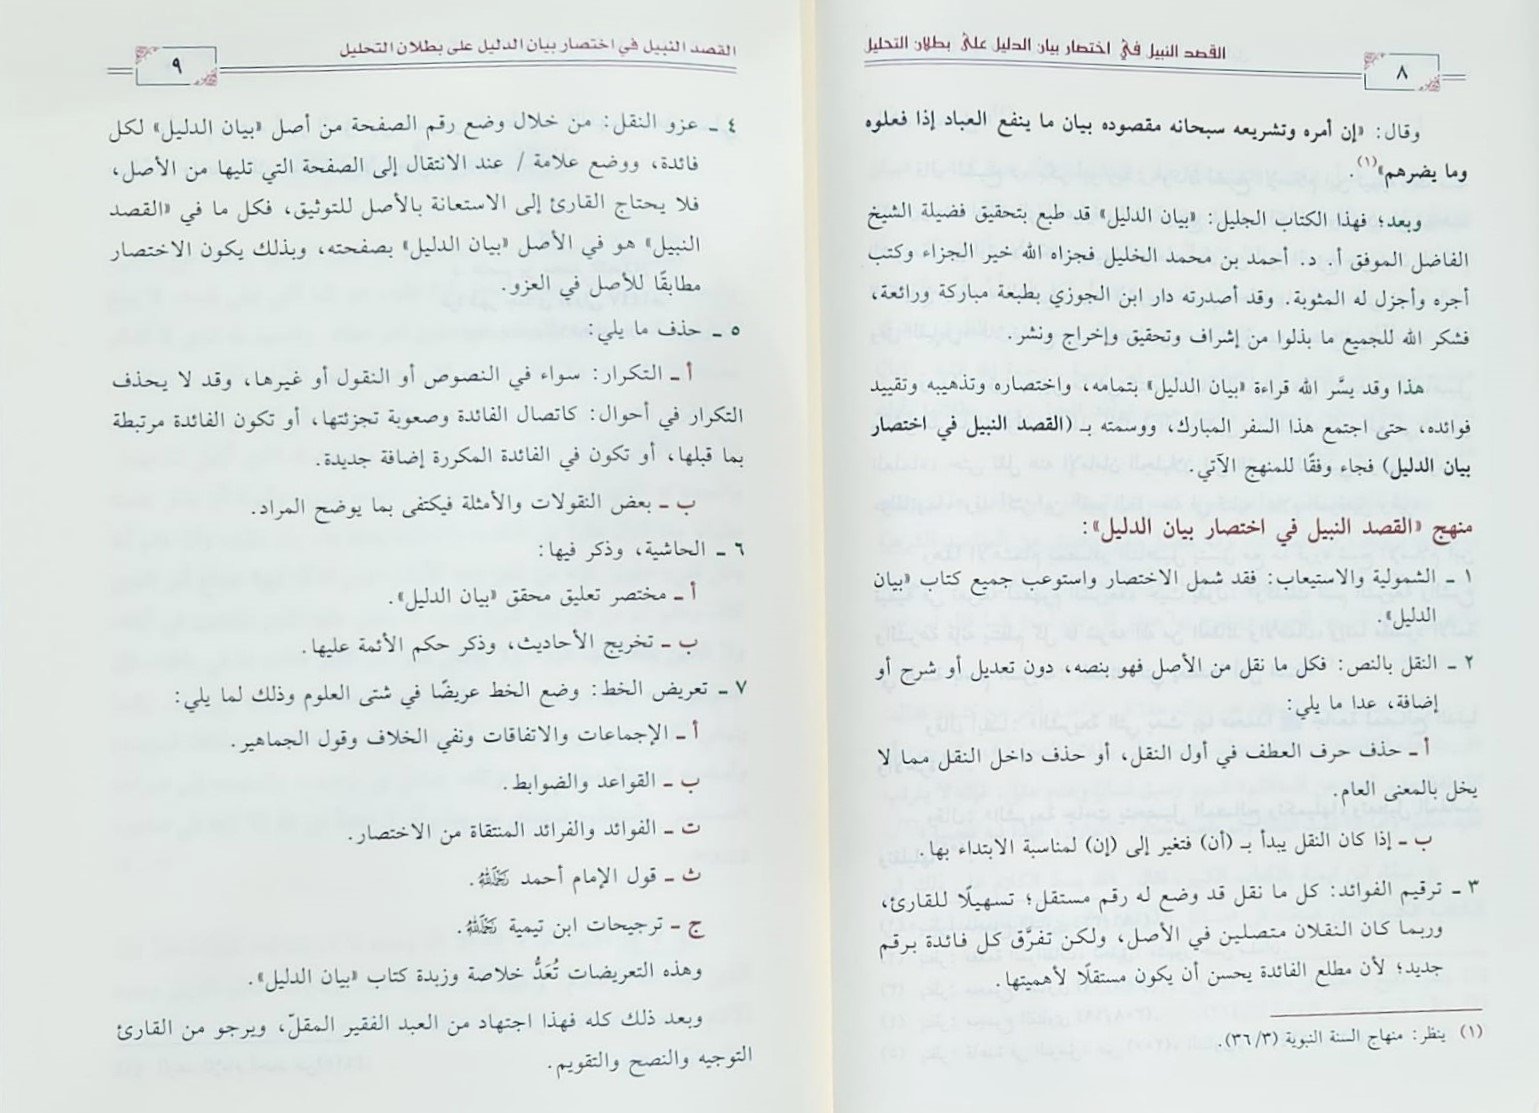 القصد النبيل في اختصار بيان الدليل على بطلان التحليل
٨
وقال: «إن أمره وتشريعه سبحانه مقصوده بيان ما ينفع العباد إذا فعلوه
وما يضرهم»(١).
وبعد؛ فهذا الكتاب الجليل: «بيان الدليل» قد طبع بتحقيق فضيلة الشيخ
الفاضل الموفق أ. د. أحمد بن محمد الخليل فجزاه الله خير الجزاء وكتب
أجره وأجزل له المثوبة. وقد أصدرته دار ابن الجوزي بطبعة مباركة ورائعة،
فشكر الله للجميع ما بذلوا من إشراف وتحقيق وإخراج ونشر.
هذا وقد يسَّر الله قراءة «بيان الدليل» بتمامه، واختصاره وتذهيبه وتقييد
فوائده، حتى اجتمع هذا السفر المبارك، ووسمته بـ (القصد النبيل في اختصار
بيان الدليل) فجاء وفقًا للمنهج الآتي.
منهج «القصد النبيل في اختصار بيان الدليل»:
١ ـ الشمولية والاستيعاب: فقد شمل الاختصار واستوعب جميع كتاب «بيان
الدليل».
٢ ـ النقل بالنص: فكل ما نقل من الأصل فهو بنصه، دون تعديل أو شرح أو
إضافة، عدا ما يلي:
أ ـ حذف حرف العطف في أول النقل، أو حذف داخل النقل مما لا
يخل بالمعنى العام.
ب ـ إذا كان النقل يبدأ بـ (أن) فتغير إلى (إن) لمناسبة الابتداء بها.
٣ ـ ترقيم الفوائد: كل ما نقل قد وضع له رقم مستقل؛ تسهيلًا للقارئ،
وربما كان النقلان متصلين في الأصل، ولكن تفرَّق كل فائدة برقم
جديد؛ لأن مطلع الفائدة يحسن أن يكون مستقلًا لأهميتها.
(١) ينظر: منهاج السنة النبوية (٣٦/٣).
القصد النبيل في اختصار بيان الدليل على بطلان التحليل
٩
٤ ـ عزو النقل: من خلال وضع رقم الصفحة من أصل «بيان الدليل» لكل
فائدة، ووضع علامة / عند الانتقال إلى الصفحة التي تليها من الأصل،
فلا يحتاج القارئ إلى الاستعانة بالأصل للتوثيق، فكل ما في «القصد
النبيل» هو في الأصل «بيان الدليل» بصفحته، وبذلك يكون الاختصار
مطابقًا للأصل في العزو.
٥ ـ حذف ما يلي:
أ ـ التكرار: سواء في النصوص أو النقول أو غيرها، وقد لا يحذف
التكرار في أحوال: كاتصال الفائدة وصعوبة تجزئتها، أو تكون الفائدة مرتبطة
بما قبلها، أو تكون في الفائدة المكررة إضافة جديدة.
ب ـ بعض النقولات والأمثلة فيكتفى بما يوضح المراد.
٦ ـ الحاشية، وذكر فيها:
أ ـ مختصر تعليق محقق «بيان الدليل».
ب ـ تخريج الأحاديث، وذكر حكم الأئمة عليها.
٧ ـ تعريض الخط: وضع الخط عريضًا في شتى العلوم وذلك لما يلي:
أ ـ الإجماعات والاتفاقات ونفي الخلاف وقول الجماهير.
ب ـ القواعد والضوابط.
ت ـ الفوائد والفرائد المنتقاة من الاختصار.
ث ـ قول الإمام أحمد رحمه الله.
ج ـ ترجيحات ابن تيمية رحمه الله.
وهذه التعريضات تُعَدُّ خلاصة وزبدة كتاب «بيان الدليل».
وبعد ذلك كله فهذا اجتهاد من العبد الفقير المقلّ، ويرجو من القارئ
التوجيه والنصح والتقويم.